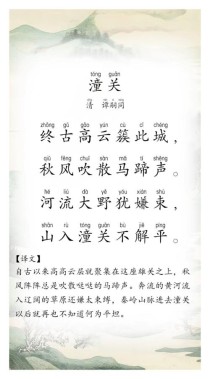 tóng guān
潼关
清 谭嗣同
zhōng gǔ gāo yún cù cǐ chéng
终古高云簇此城，
qiū fēng chuī sàn mǎ tí shēng
秋风吹散马蹄声。
hé liú dà yě yóu xián shù
河流大野犹嫌束，
shān rù tóng guān bù jiě píng
山入潼关不解平。
【译文】
自古以来高高云层就聚集在这座雄关之上，秋
风阵阵总是吹散哒哒的马蹄声。奔流的黄河流
入辽阔的草原还嫌太束缚，秦岭山脉进去潼关
以后就再也不知道何为平坦。